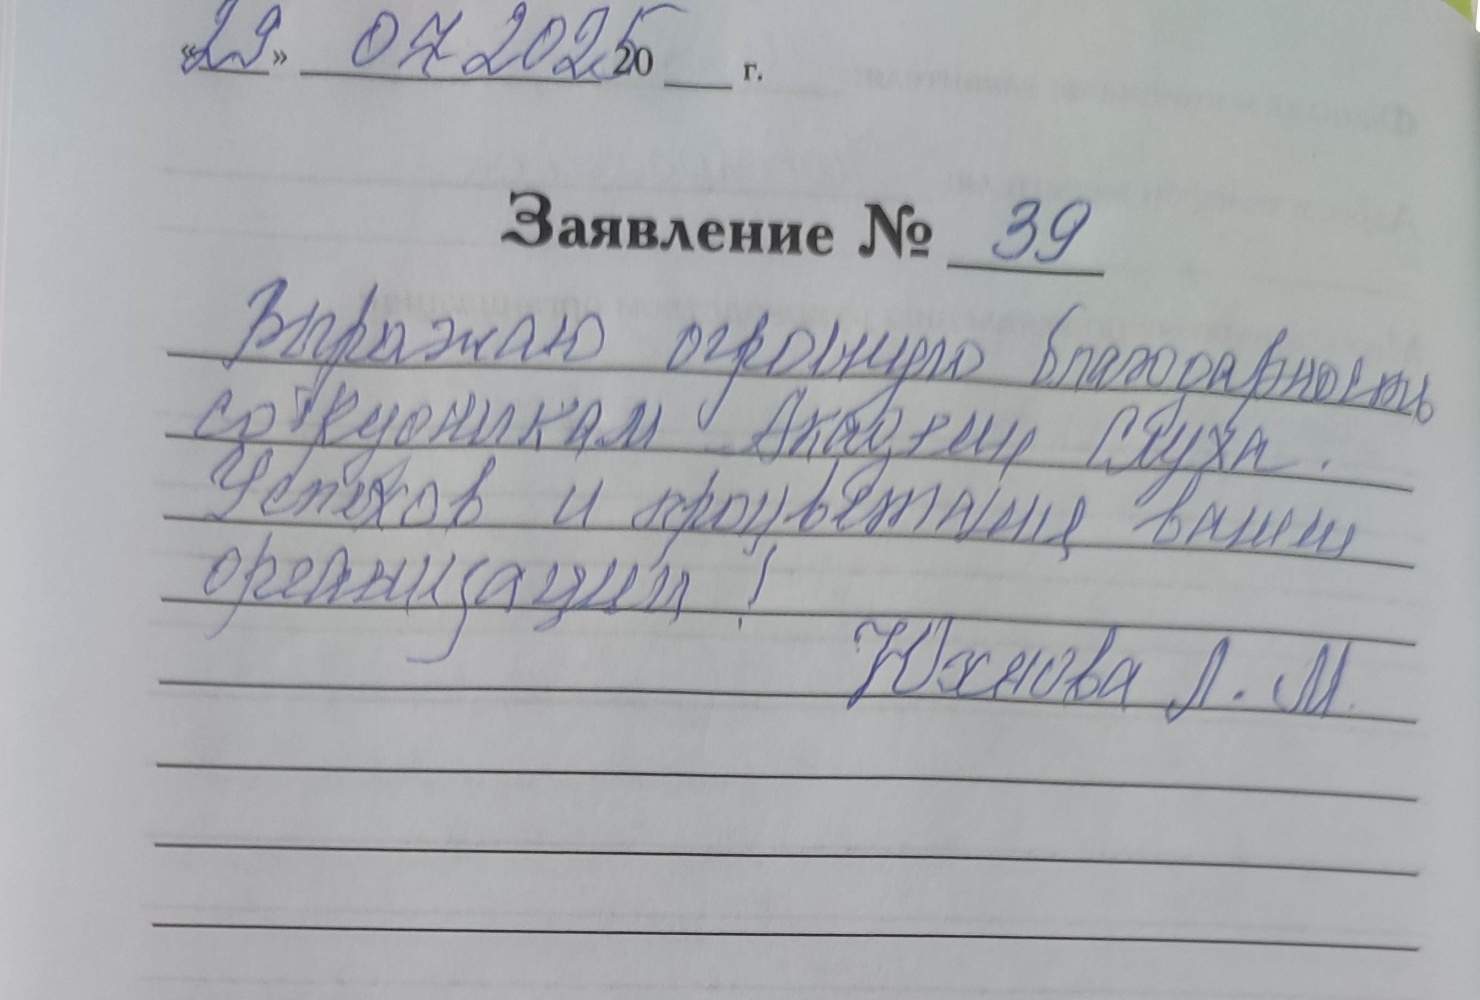 «29» 07 2025 20 г.
Заявление № 39
Выражаю огромную благодарность
сотрудникам Академии Слуха.
Успехов и процветания вашей
организации!
Юхнова Л. М.